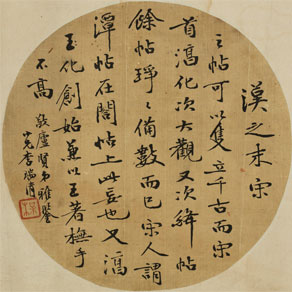 漢之末宋
之帖可以隻立千古而宋
首淳化次大觀又次絳帖
餘帖琤琤備數而已宋人謂
潭帖在閣帖上此妄也又淳
化創始兼以王著橅手
不高
敬廬賢弟雅鑒
小兄李瑞清